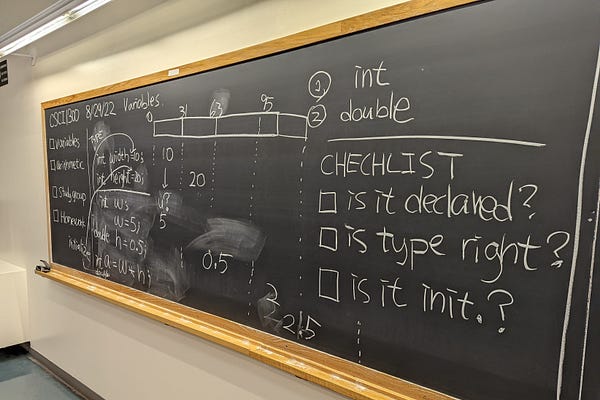 CSCI1300 8/29/22 Variables
□ Variables
□ Arithmetic
□ Study group
□ Homework
TYPE
int width=10;
int height=20;
int w;
w=5;
double h=0.5;
Initialize
double a=w*h;
0 31 63 95
10
↓
5
20
0.5
2.5
1. int
2. double
CHECHLIST
□ is it declared?
□ is type right?
□ is it init.?